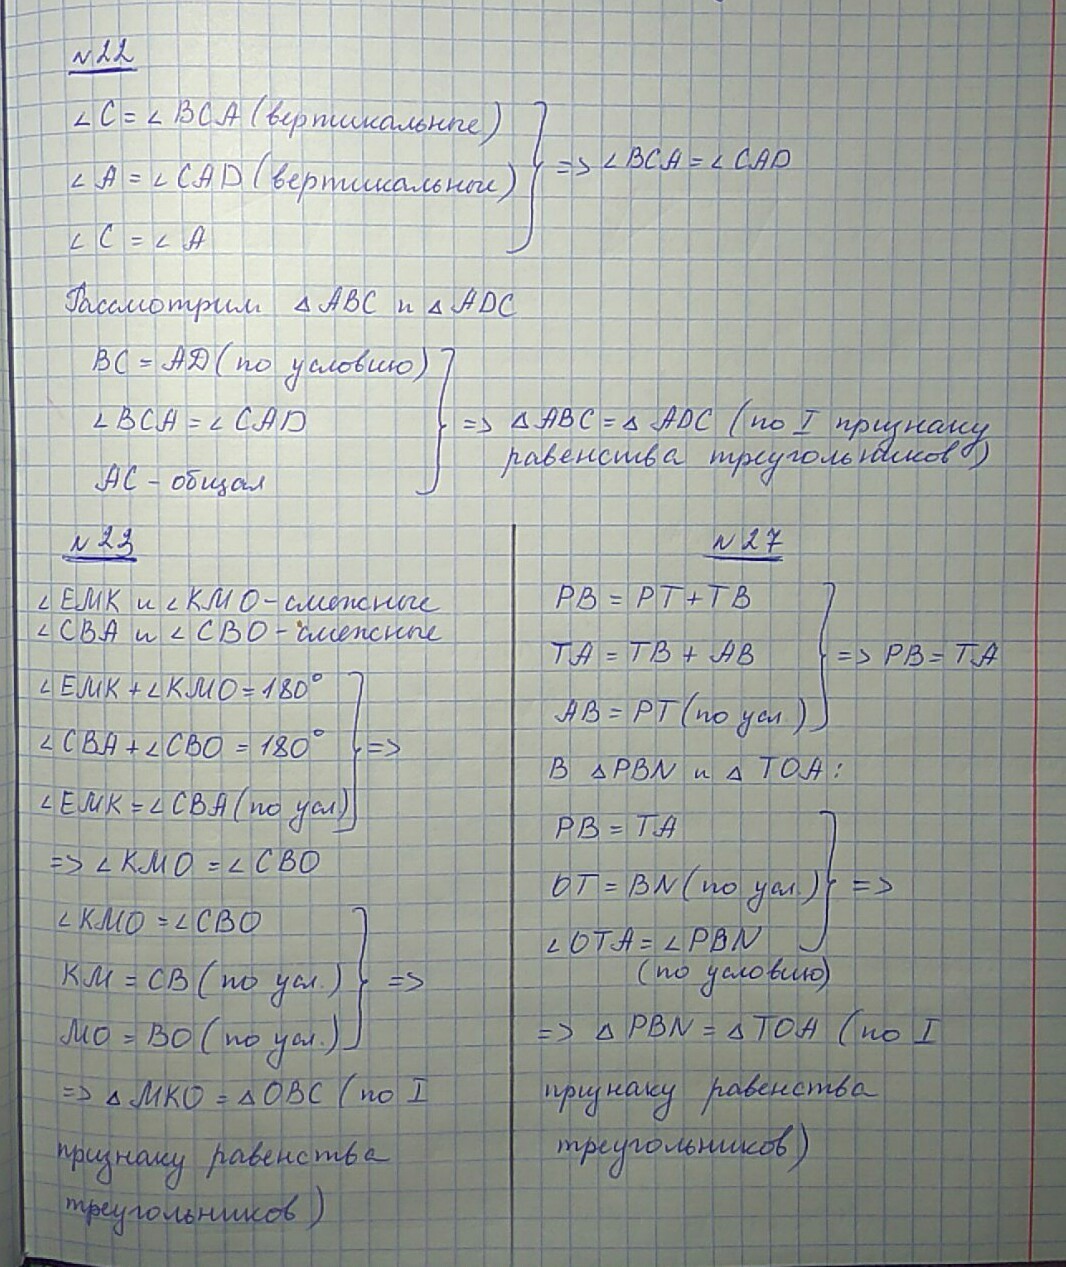 №22
∠C = ∠BCA (вертикальные)
∠A = ∠CAD (вертикальные)
∠C = ∠A
=> ∠BCA = ∠CAD
Рассмотрим △ABC и △ADC
BC = AD (по условию)
∠BCA = ∠CAD
AC - общая
=> △ABC = △ADC (по I признаку
равенства треугольников)
№23
∠EMK и ∠KMO - смежные
∠CBA и ∠CBO - смежные
∠EMK + ∠KMO = 180°
∠CBA + ∠CBO = 180° =>
∠EMK = ∠CBA (по усл)
=> ∠KMO = ∠CBO
∠KMO = ∠CBO
KM = CB (по усл.) =>
MO = BO (по усл.)
=> △MKO = △OBC (по I
признаку равенства
треугольников)
№27
PB = PT + TB
TA = TB + AB => PB = TA
AB = PT (по усл.)
В △PBN и △TOA:
PB = TA
OT = BN (по усл.) =>
∠OTA = ∠PBN
(по условию)
=> △PBN = △TOA (по I
признаку равенства
треугольников)